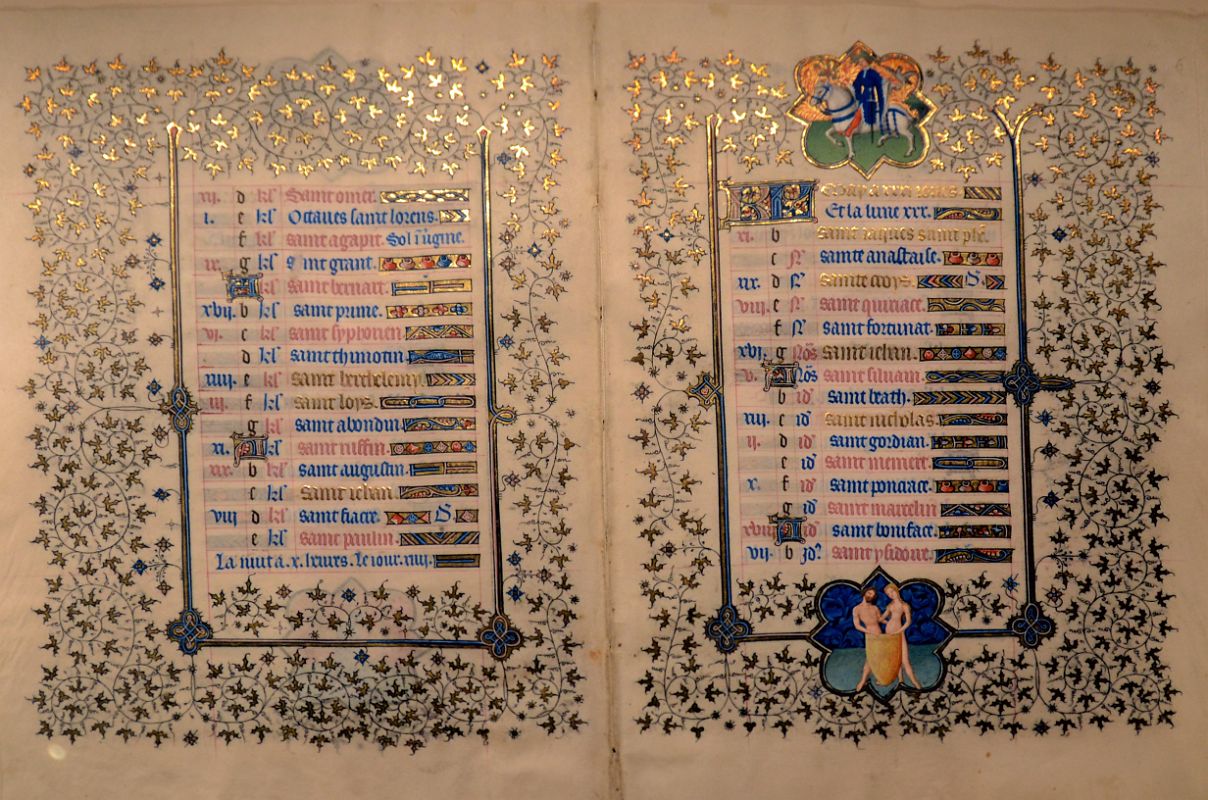 xii. d kl Saint omer.
i. e kl Octaues saint lorens.
f kl saint agapit. Sol in uirgine.
ix. g kl saint grant.
A kl saint bernart.
xvii. b kl saint prime.
vi. c kl saint syphorien
d kl saint thimotin
xiiii. e kl saint berthelemy.
iii. f kl saint loys.
g kl saint abondin
xi. A kl saint ruffin.
xix. b kl saint augustin.
c kl saint iehan
viii d kl saint fiacre. S
e kl saint paulin.
La nuit a .x. heures. Le iour .xiiii.
KL May a xxxi iours.
Et la lune xxx.
xi. b saint iaques saint phe.
c N. sainte anastaise.
xix. d N. sainte croys. S.
viii. e N. saint quiriace.
f N. saint fortunat.
xvi. g Nos saint iehan.
v. A Nos saint siluain.
b id saint beath.
xiii. c id saint nicholas.
ii. d id saint gordian.
e id saint memert.
x. f id saint ponciace.
g id saint marcelin
xviii A id saint boniface.
vii. b id. saint ysidoire.